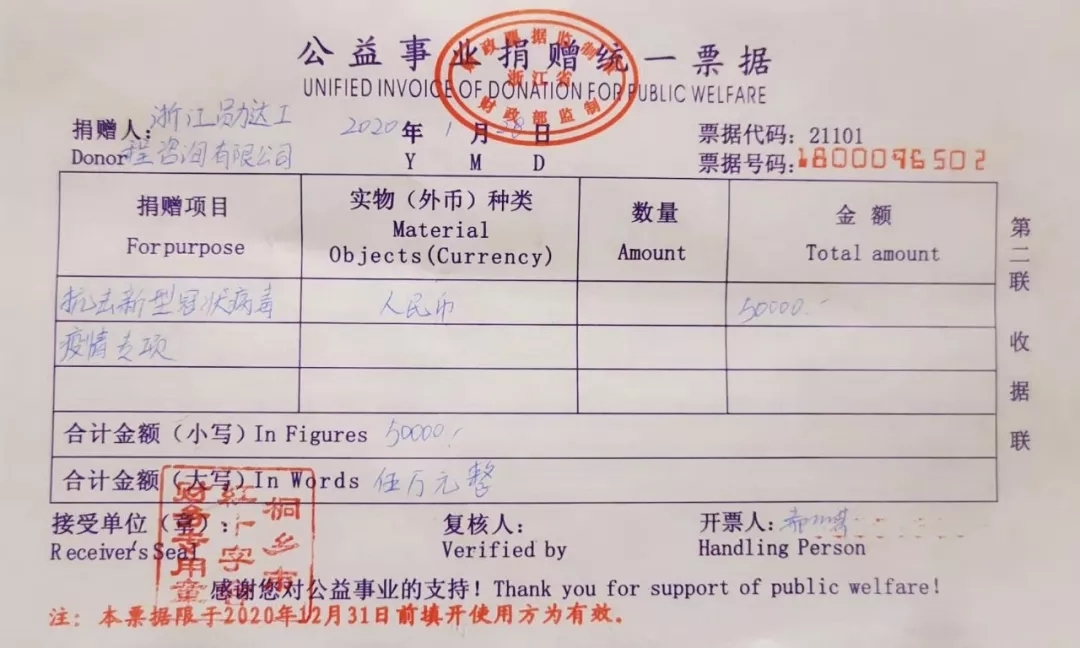 公益事业捐赠统一票据
UNIFIED INVOICE OF DONATION FOR PUBLIC WELFARE
财政票据监制章
浙江省
财政部监制
捐赠人：浙江勋达工
Donor 程咨询有限公司
2020年1月28日
Y M D
票据代码：21101
票据号码：1800096502
捐赠项目
For purpose
实物（外币）种类
Material
Objects(Currency)
数量
Amount
金额
Total amount
抗击新型冠状病毒 人民币 50000.
疫情专项
合计金额（小写）In Figures 50000.
合计金额（大写）In Words 伍万元整
接受单位（章）：
Receiver's Seal
复核人：
Verified by
开票人：
Handling Person
桐乡市
红十字会
财务专用章
感谢您对公益事业的支持！Thank you for support of public welfare!
注：本票据限于2020年12月31日前填开使用方为有效。
第二联 收据联